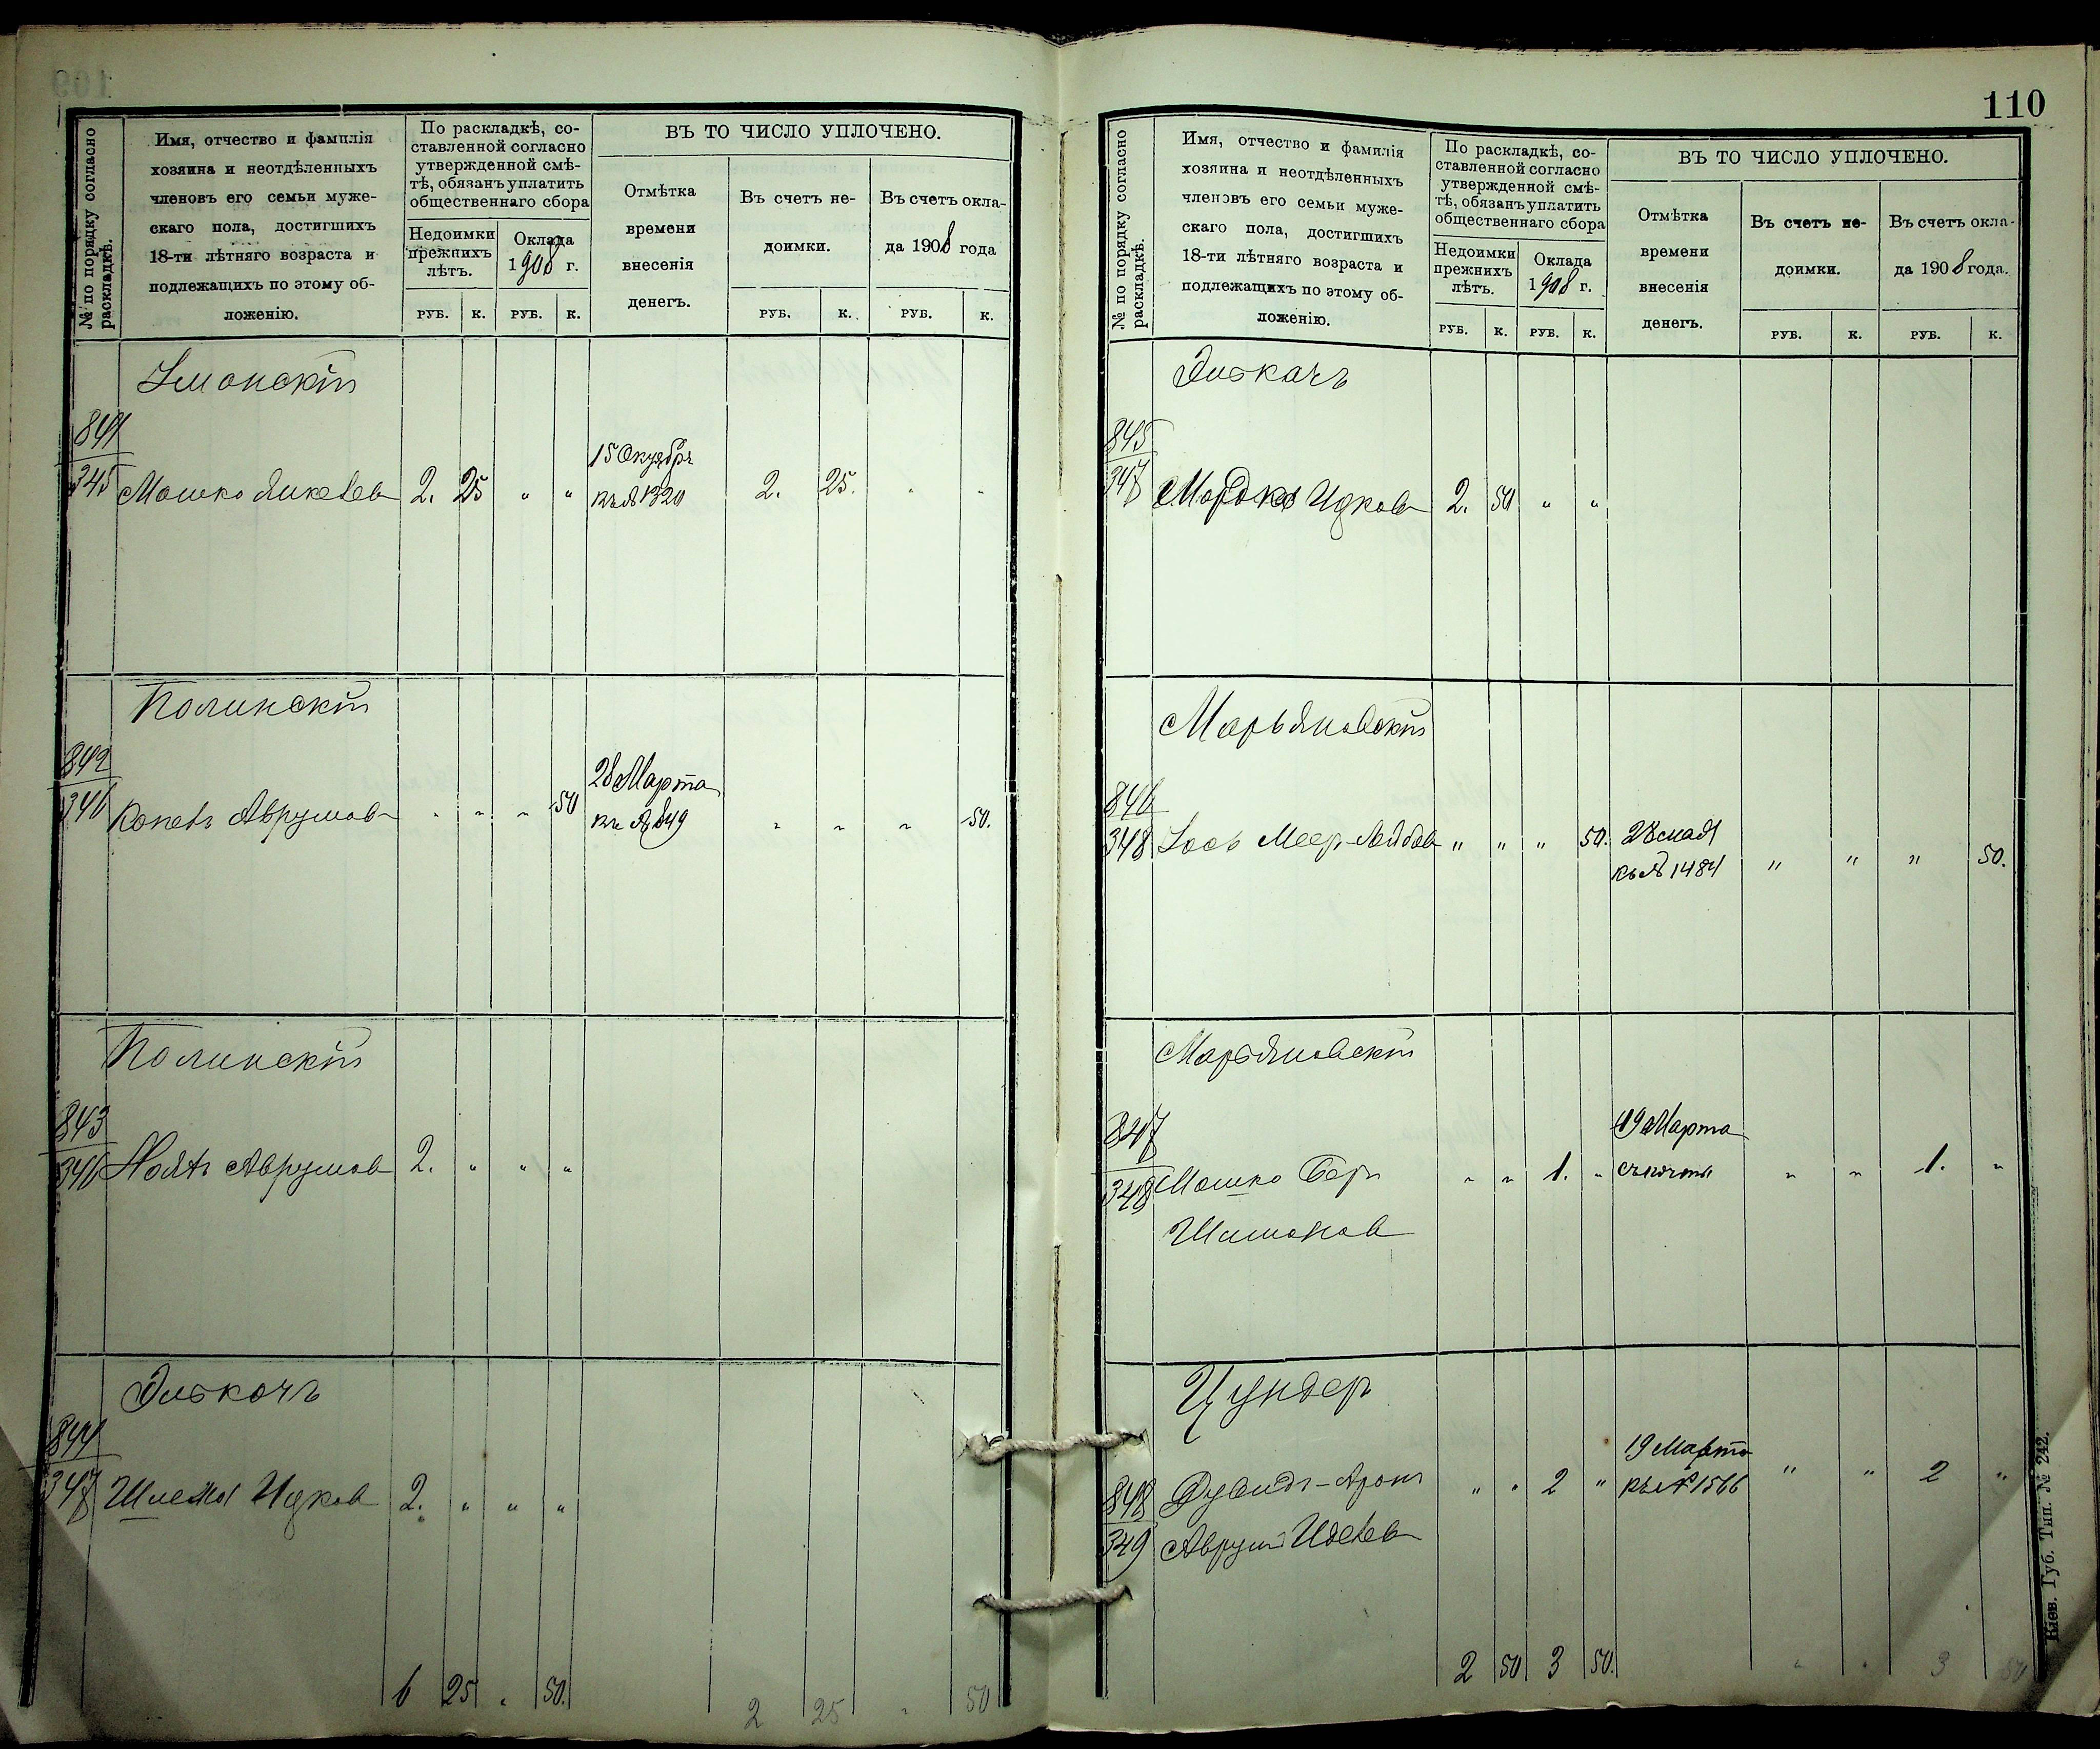 № по порядку согласно раскладкѣ.
Имя, отчество и фамилія
хозяина и неотдѣленныхъ
членовъ его семьи муже-
скаго пола, достигшихъ
18-ти лѣтняго возраста и
подлежащихъ по этому об-
ложенію.
По раскладкѣ, со-
ставленной согласно
утвержденной смѣ-
тѣ, обязанъ уплатить
общественнаго сбора
Недоимки
прежнихъ
лѣтъ.
Оклада
1908 г.
РУБ. К. РУБ. К.
ВЪ ТО ЧИСЛО УПЛОЧЕНО.
Отмѣтка
времени
внесенія
денегъ.
Въ счетъ не-
доимки.
Въ счетъ окла-
да 1908 года
РУБ. К. РУБ. К.
841
345 Мошко Янкелев 2. 25 " " 15 Октябр
къ № 1320 2. 25. " "
Полинскій
842
346 Копель Аврумов " " " 50 28 Марта
къ № 849 " " " 50.
Полинскій
843
346 Аврумов 2. " " "
Элькочъ
844
347 Шлема Ицков 2. " " "
6 25 " 50.
2 25 " 50
110
№ по порядку согласно раскладкѣ.
Имя, отчество и фамилія
хозяина и неотдѣленныхъ
членовъ его семьи муже-
скаго пола, достигшихъ
18-ти лѣтняго возраста и
подлежащихъ по этому об-
ложенію.
По раскладкѣ, со-
ставленной согласно
утвержденной смѣ-
тѣ, обязанъ уплатить
общественнаго сбора
Недоимки
прежнихъ
лѣтъ.
Оклада
1908 г.
РУБ. К. РУБ. К.
ВЪ ТО ЧИСЛО УПЛОЧЕНО.
Отмѣтка
времени
внесенія
денегъ.
Въ счетъ не-
доимки.
Въ счетъ окла-
да 1908 года.
РУБ. К. РУБ. К.
Элькачъ
845
347 Мордко Ицков 2. 50 " "
Марьяновскій
846
348 Іось Меер-Лейбов " " " 50. 28 мая
къ № 1484 " " " 50.
Марьяновскій
847
348 Мошко Бер " " 1. " 19 Марта
" " 1. "
Шимонов
Цундер
848
349 Дувидъ-Арон " " 2 " 19 Марта
къ № 1566 " " 2 "
Аврум Иделев
2 50 3 50.
" " 3 50
Кіев. Губ. Тип. № 242.